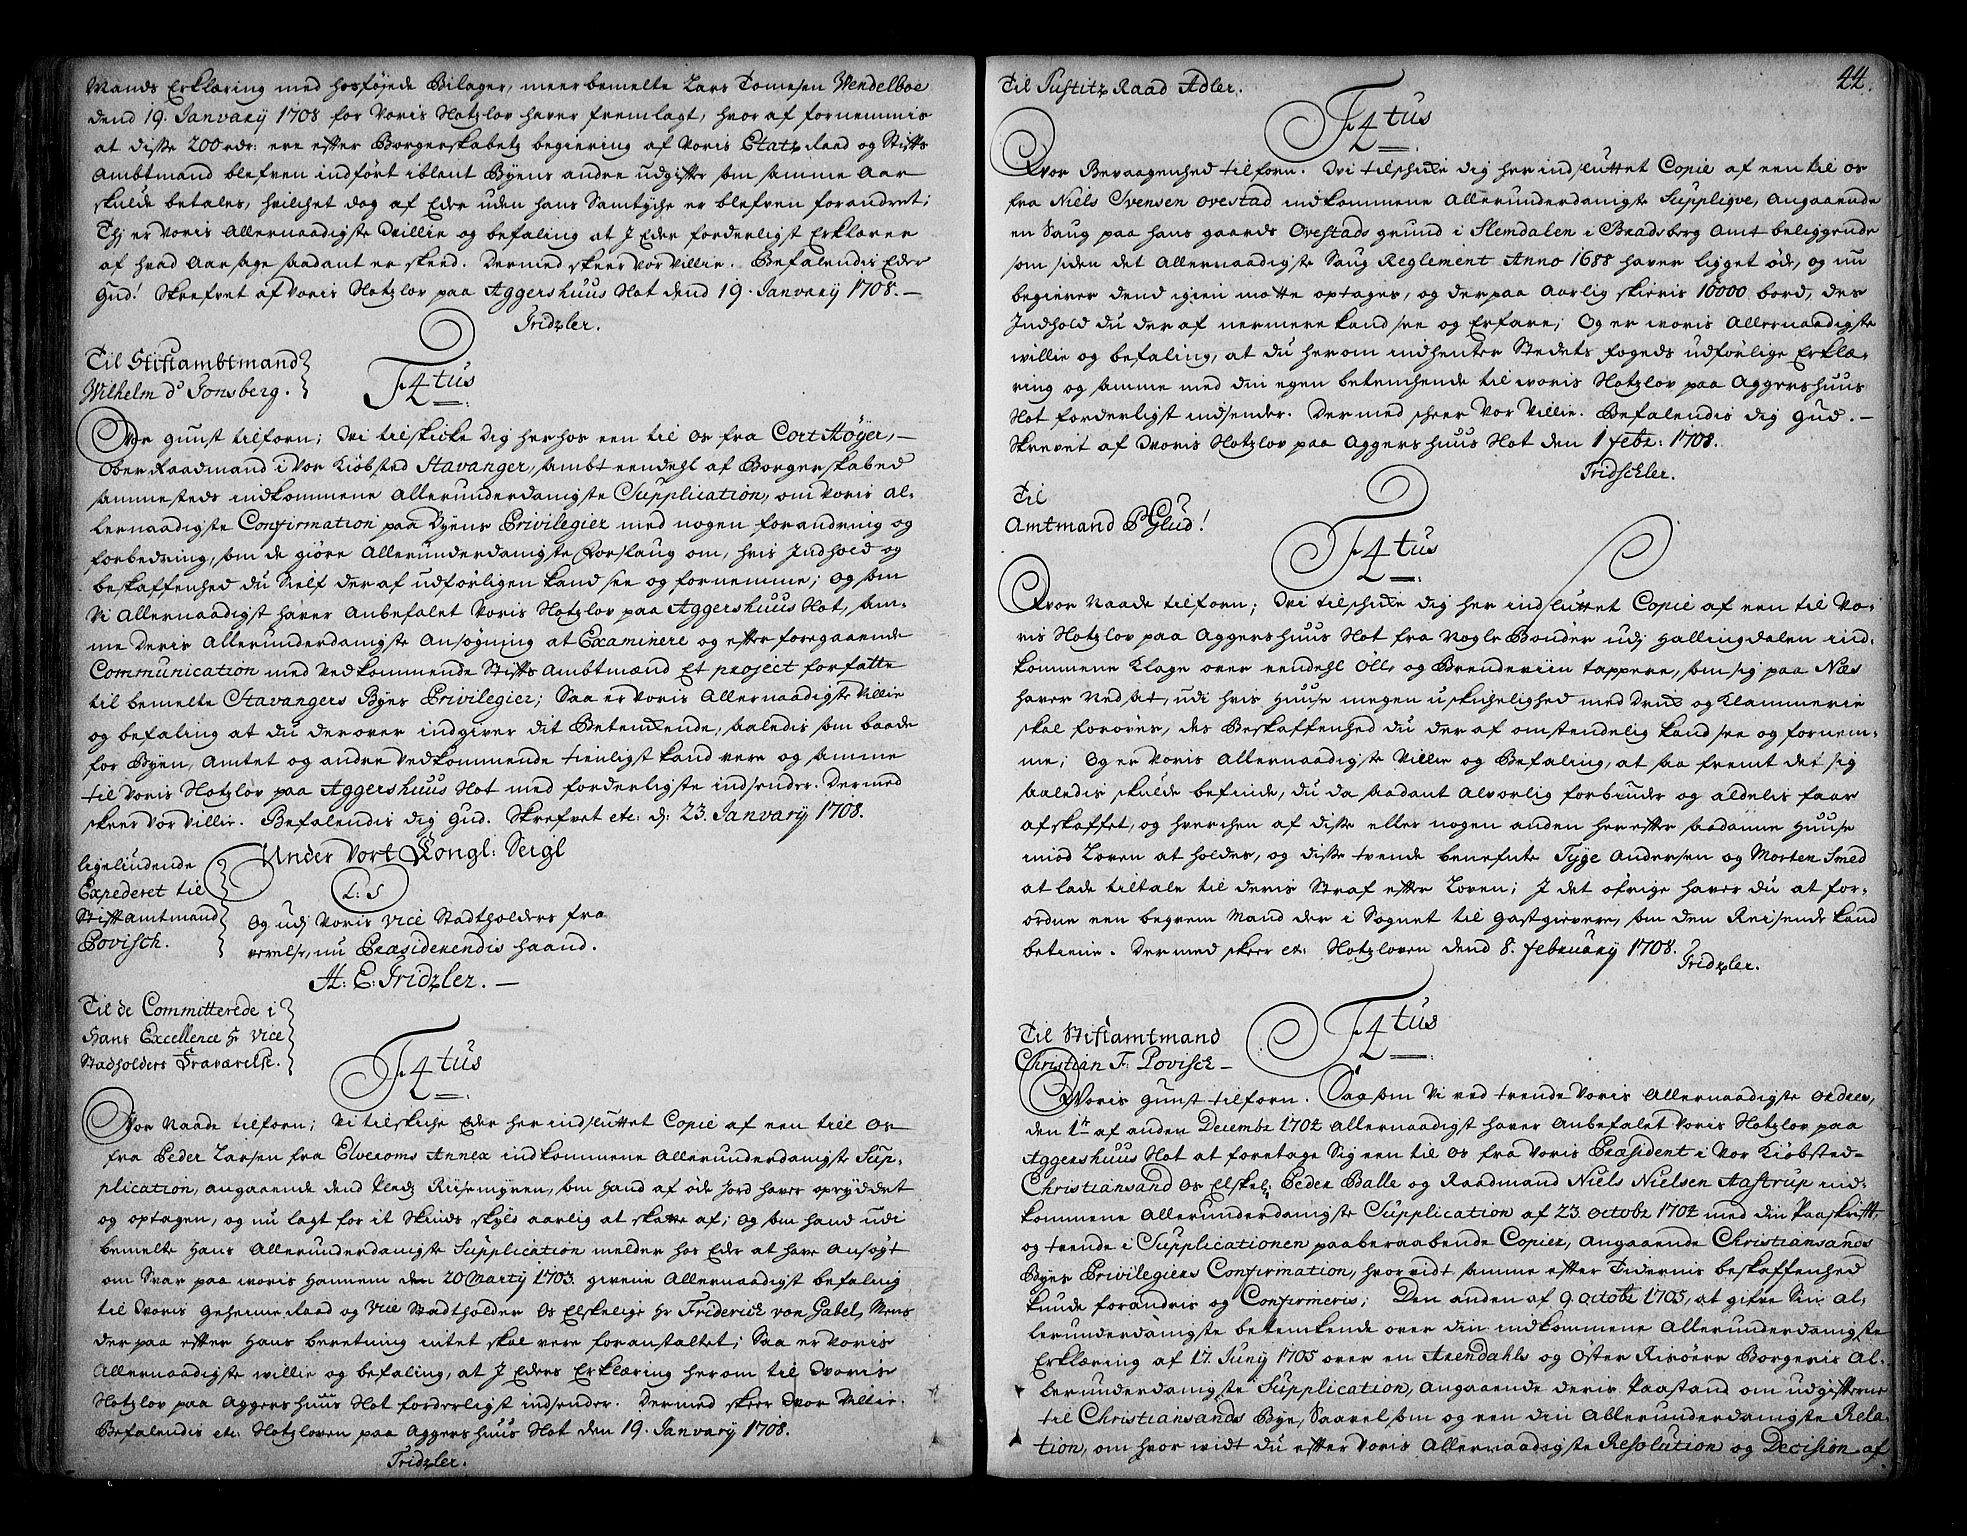 Mands Erklæring med hosføyede Bilager, meer bemelte Lars Tomesen Wendelboe
dend 19. Janvarij 1708 for Voris Slotzlov haver fremlagt, hvor af fornemmis
at disse 200 rdr: ere efter Borgerskabetz begiering af Voris Etatz Raad og Stifts
Ambtmand blefven indført iblant Byens andre udgifter som samme Aar
skulde betales, hvilchet dog af Eder uden hans Samtyche er blefven forandret;
Thj er Voris Allernaadigste Willie og befaling at I Eder forderligst Erklærer
af hvad Aarsage saadant er skeed. Dermed skeer Vor Villie. Befalendis Eder
Gud! Skrefvet af Voris Slotzlov paa Aggershuus Slot dend 19. Janvarij 1708. —
Tridzler.
Til Stiftambtmand
Wilhelm d' Tonsberg.
F4tus
Vor gunst tilforn; Wi tilskicke dig herhos een til Os fra Cort Høyer, —
Ober Raadmand i Vor Kiøbsted Stavanger, sambt eendehl af Borgerskabed
sammesteds indkommene Allerunderdanigste Supplication, om Voris al-
lernaadigste Confirmation paa Byens Privilegier med nogen forandring og
forbedring, som de giøre Allerunderdanigste Forslaug om, hvis Indhold og
beskaffenhed du Sielf der af udførligen kand see og fornemme; Og som
Vi Allernaadigst haver Anbefalet Voris Slotzlov paa Aggershuus Slot, sam-
me deris Allerunderdanigste Ansøgning at Examinere og efter foregaaende
Communication med Vedkommende Stifts Ambtmænd Et project forfatte
til bemelte Stavangers Byes Privilegier; Saa er Voris Allernaadigste Villie
og befaling at du derover indgiver dit Betenckende, saaledis som baade
for Byen, Amtet og andre Vedkommende tienligst kand vere og samme
til Voris Slotzlov paa Aggershuus Slot med forderligste indsender. Dermed
skeer Vor Villie. Befalendis dig Gud. Skrefvet etc: d: 23. Janvarij 1708.
Under Vort Kongl: Seigl
L: S
ligeliudende
Expederet til
Stiftamtmand
Povisch.
Og udj Voris vice Stadtholders fra
verelse, nu Præsiderendis haand.
H: E: Tridzler. —
Til de Committerede i
Hans Excellence Hr Vice
Stadholders Fraværelse.
F4tus
Vor Naade tilforn; Vi tilskiche Eder her indsluttet Copie af een till Os
fra Peder Larsen fra Elveroms Annex indkommene Allerunderdanigste Sup-
plication, angaaende dend Pladz Riisemyren, som hand af øde Jord haver opryddet
og optagen, og nu lagt for it Skinds skyld aarlig at skatte af; Og som hand udi
bemelte Hans Allerunderdanigste Supplication melder hos Eder at have Ansøgt
om Svar paa woris Hannem den 20 Martij 1703. givene Allernaadigst befaling
til Woris Geheime Raad og Vice Stadtholder Os Elskelige Hr Friderich von Gabel, Mens
der paa efter Hans beretning intet skal vere foranstaltet; Saa er Voris
Allernaadigste willie og befaling, at I Eders Erklæring herom til Woris
Slotzlov paa Aggershuus Slot forderligst indsender. Dermed skeer Vor Villie.
Befalendis etc: Slotzloven paa Aggershuus Slot den 19. Janvarij 1708.
Tridzler.
44.
Til Justitz Raad Adler.
F4tus
Vor Bevaagenhed tilforn. Wi tilschicke dig her indsluttet Copie af een til os
fra Niels Svensen Ovestad indkommene Allerunderdanigste Suppliqve, Angaaende
en Saug paa hans gaards Ovestads grund i Slemdalen i Bradsberg Amt beliggende
som siden det Allernaadigste Saug Reglement Anno 1688 haver ligget øde, og nu
begierer dend igien motte optages, og derpaa Aarlig skieris 10000 bord, des
Indhold du der af nermere kand see og Erfare; Og er woris Allernaadigste
willie og befaling, at du herom indhenter Stedets fogeds udførlige Erklæ-
ring og samme med din egen betenchende til woris Slotzlov paa Aggershuus
Slot forderligst indsender. Der med skeer Vor Villie. Befalendis dig Gud. —
Skrevet af Woris Slotzlov paa Aggershuus Slot den 1 febr: 1708.
Tridschler.
Til
Amtmand P Glud!
F4tus
Vor Naade tilforn; Wi tilschicke dig her indsluttet Copie af een til Vo-
ris Slotzlov paa Aggershuus Slot fra Nogle Bønder udj Hallingdalen ind-
kommene Klage over eendehl Ølls og Brendeviin tappere, som sig paa Næs
haver Nedsat, udi hvis Huuse megen uskichelighed med Druc og Klammerie
skal forøves, des Beskaffenhed du der af omstendelig kand see og fornem-
me; Og er Voris Allernaadigste Villie og Befaling, at saa fremt det sig
saaledis skulde befinde, du da saadant Alvorlig forbiuder og aldelis faar
afskaffet, og hverchen af disse eller nogen anden her efter saadanne Huuse
mod Loven at holdes, og disse tvende benefnte Tyge Andersen og Morten Smed
at lade tiltale til deris Straf efter Loven; I det øfrige haver du at for-
ordne een beqvem Mand der i Sognet til Gastgievere, som den Reisende kand
betiene. Dermed skeer etc: Slotzloven dend 8. februarij 1708.
Tridzler.
Til Stiftamtmand
Christian F: Povisch —
F4tus
Voris gunst tilforn. Saasom Vi ved tvende Voris Allernaadigste Ordres,
den 1te af anden Decembr 1704 Allernaadigst haver Anbefalet Voris Slotzlov paa
Aggershuus Slot at foretage Sig een til os fra Voris Præsident i Vor Kiøbsted
Christiansand os Elskel: Peder Balle og Raadmand Niels Nielsen Aastrup ind-
kommene Allerunderdanigste Supplication af 23. octobr 1704 med din Paaskrift,
og tvende i Supplicationen paaberaabende Copier, Angaaende Christiansands
Byes Privilegiers Confirmation, hvor vidt samme efter Tidernis beskaffenhed
kunde forandris og Confirmeris; Den anden af 9 octobr 1705, at gifve Sin Al-
lerunderdanigste betenkende over din indkommene Allerunderdanigste
Erklæring af 17. Junij 1705 over en Arendahls og Oster Risøers Borgeris Al-
lerunderdanigste Supplication, angaaende deris Paastand om udgifterne
til Christiansands Bye, Saavel som og een din Allerunderdanigste Rela-
tion, om hvor widt du efter Voris Allernaadigste Resolution og Decision af